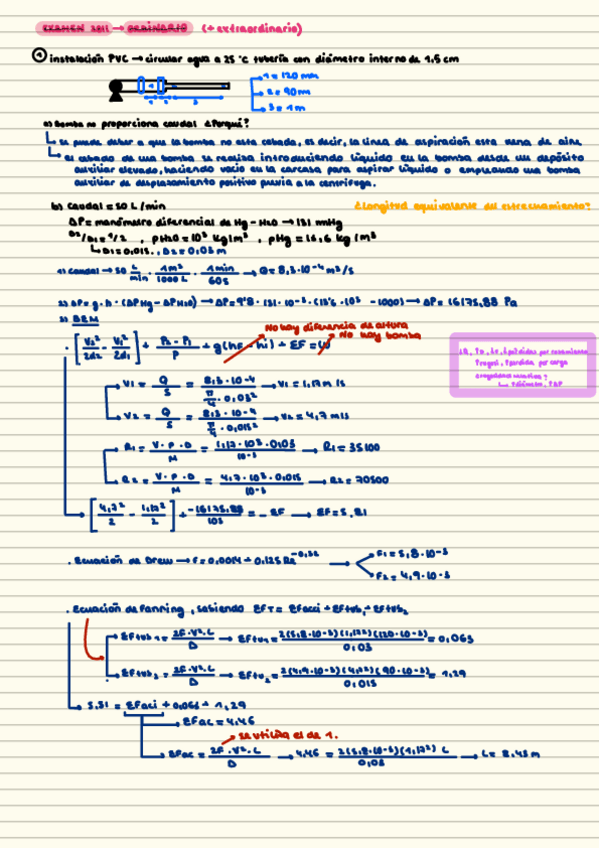 EXAMEN 2011 → ORDINARIO (+ extraordinario)
① instalación PVC → circular agua a 25 °C tubería con diámetro interno de 1,5 cm
1 = 120 mm
2 = 90 mm
3 = 1 m
a) Bomba no proporciona caudal ¿Porqué?
se puede deber a que la bomba no esta cebada, es decir, la linea de aspiración esta llena de aire
el cebado de una bomba se realiza introduciendo líquido en la bomba desde un depósito
auxiliar elevado, haciendo vacío en la carcasa para aspirar líquido o empleando una bomba
auxiliar de desplazamiento positivo previa a la centrífuga.
b) caudal = 50 L/min
¿Longitud equivalente del estrechamiento?
ΔP = manómetro diferencial de Hg - H2O → 131 mmHg
D2/D1 = 1/2 , ρH2O = 10³ kg/m³ , ρHg =
D1 = 0,015, D2 = 0,03 m
1) caudal → 50 L/min · 1 m³/1000 L · 1 min/60 s → Q = 8,3·10⁻⁴ m³/s
2) ΔP = g·h·(ΔρHg - ΔρH2O) → ΔP = 9'8 · 131·10⁻³ · (13'6·10³ - 1000) → ΔP = 16175,88 Pa
3) BEM
No hay diferencia de altura
No hay bomba
· [V2²/2α2 - V1²/2α1] + P2 - P1/ρ + g(h2 - h1) + ΣF = W
V1 = Q/S = 8,3·10⁻⁴/(π/4 · 0,03²) → V1 = 1,17 m/s
V2 = Q/S = 8,3·10⁻⁴/(π/4 · 0,015²) → V2 = 4,7 m/s
R1 = V·ρ·D/M = 1,17·10³·0,03/10⁻³ → R1 = 35100
R2 = V·ρ·D/M = 4,7·10³·0,015/10⁻³ → R2 = 70500
[4,7²/2 - 1,17²/2] + -16175,88/10³ = -ΣF → ΣF = 5,81
· Ecuación de Drew → f = 0,0014 + 0,125 Re⁻⁰·³²
F1 = 5,8·10⁻³
F2 = 4,9·10⁻³
· Ecuación de Fanning, sabiendo ΣFT = ΣFacci + ΣFtub1 + ΣFtub2
ΣFtub1 = 2F·V²·L/D → ΣFtu1 = 2(5,8·10⁻³)(1,17²)(120·10⁻³)/0,03 = 0,063
ΣFtub2 = 2F·V²·L/D → ΣFtu2 = 2(4,9·10⁻³)(4,7²)(90·10⁻³)/0,015 = 1,29
5,81 = ΣFacci + 0,063 + 1,29
ΣFac = 4,46
se utiliza el de 1.
ΣFac = 2F·V²·L/D → 4,46 = 2(5,8·10⁻³)(1,17²) L/0,03 → L = 8,43 m